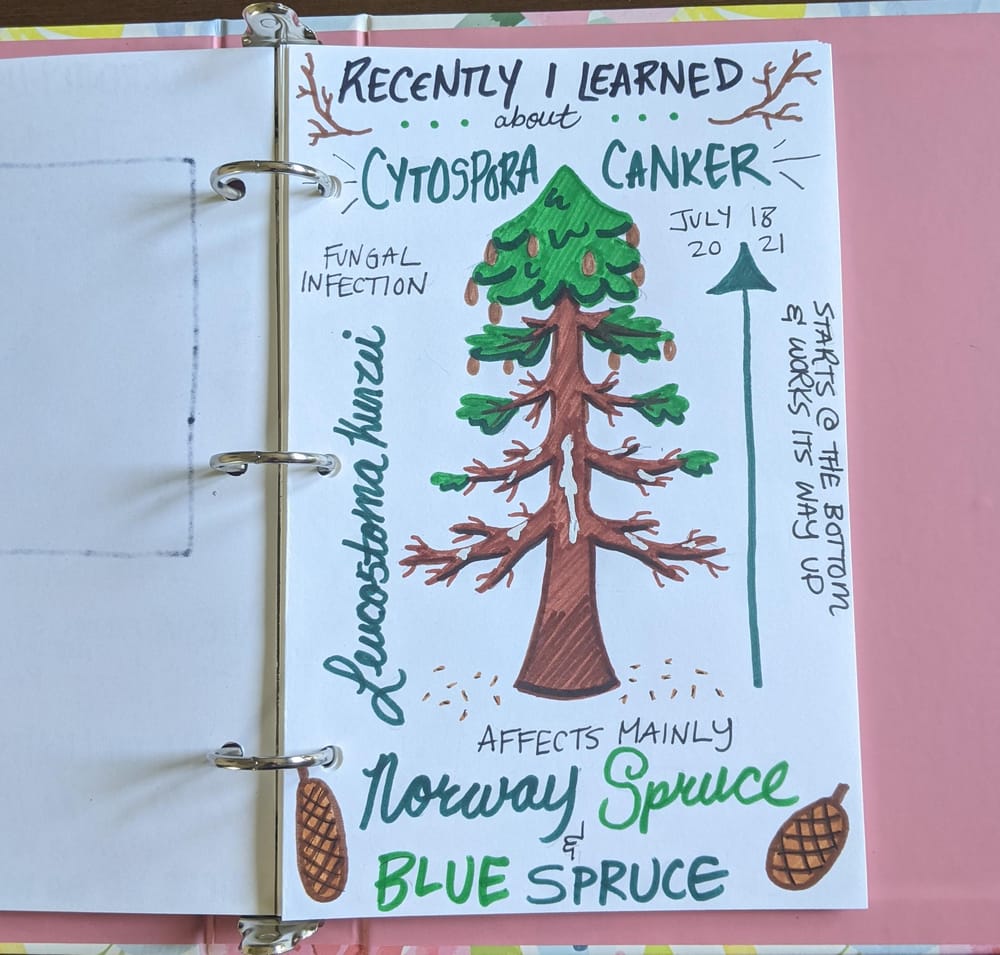 RECENTLY I LEARNED
about
CYTOSPORA CANKER
JULY 18
20 21
FUNGAL
INFECTION
Leucostoma Kunzei
STARTS @ THE BOTTOM
& WORKS ITS WAY UP
AFFECTS MAINLY
Norway Spruce
&
BLUE SPRUCE